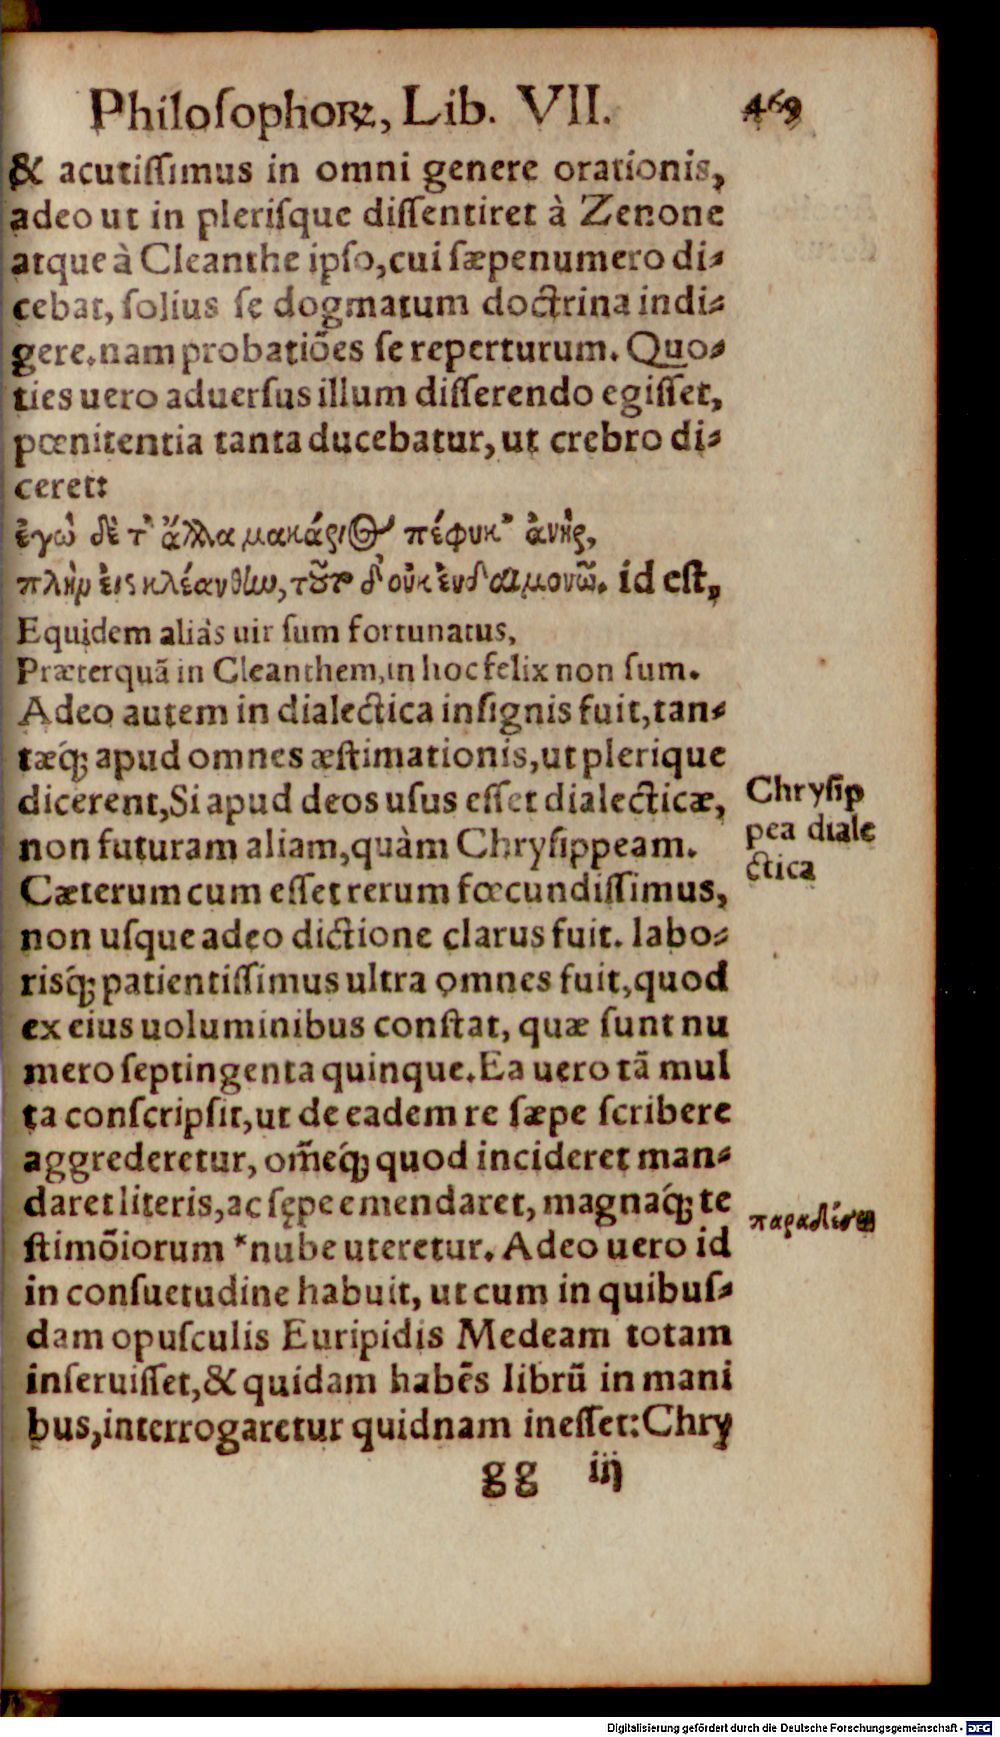 Philosophoꝝ, Lib. VII. 469
& acutissimus in omni genere orationis,
adeo ut in plerisque dissentiret à Zenone
atque à Cleanthe ipso, cui sæpenumero di⸗
cebat, solius se dogmatum doctrina indi⸗
gere. nam probatiões se reperturum. Quo⸗
ties uero aduersus illum disserendo egisset,
pœnitentia tanta ducebatur, ut crebro di⸗
ceret:
ἐγὼ δὲ τ᾽ ἄλλα μακάριος πέφυκ᾽ ἀνὴρ,
πλὴν εἰς κλέανθην, τοῦτο δ᾽ οὐκ ἐνδαιμονῶ. id est,
Equidem aliàs uir sum fortunatus,
Præterquã in Cleanthem, in hoc felix non sum.
Adeo autem in dialectica insignis fuit, tan⸗
tæq́; apud omnes æstimationis, ut plerique
dicerent, Si apud deos usus esset dialecticæ,
non futuram aliam, quàm Chrysippeam.
Chrysip
pea diale
ctica
Cæterum cum esset rerum fœcundissimus,
non usque adeo dictione clarus fuit. labo⸗
risq́; patientissimus ultra omnes fuit, quod
ex eius uoluminibus constat, quæ sunt nu
mero septingenta quinque. Ea uero tã mul
ta conscripsit, ut de eadem re sæpe scribere
aggrederetur, om̃eq́; quod incideret man⸗
daret literis, ac sępe emendaret, magnaq́; te
stimõiorum *nube uteretur. Adeo uero id
in consuetudine habuit, ut cum in quibus⸗
dam opusculis Euripidis Medeam totam
inseruisset, & quidam habẽs librũ in mani
bus, interrogaretur quidnam inesset: Chry
gg iij
Digitalisierung gefördert durch die Deutsche Forschungsgemeinschaft - DFG